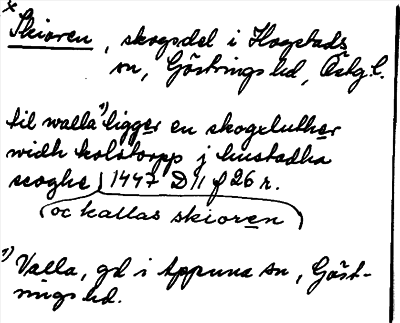 x Skioren, skogsdel i Hogstads
sn, Göstrings hd, Östg l.
til walla 1) ligger en skogxluther
widh kolstorpp j hustadha
scoghe 1447 D 11 f 26 r.
(oc kallas skioren)
1) Valla, gd i Appuna sn, Göst-
rings hd.